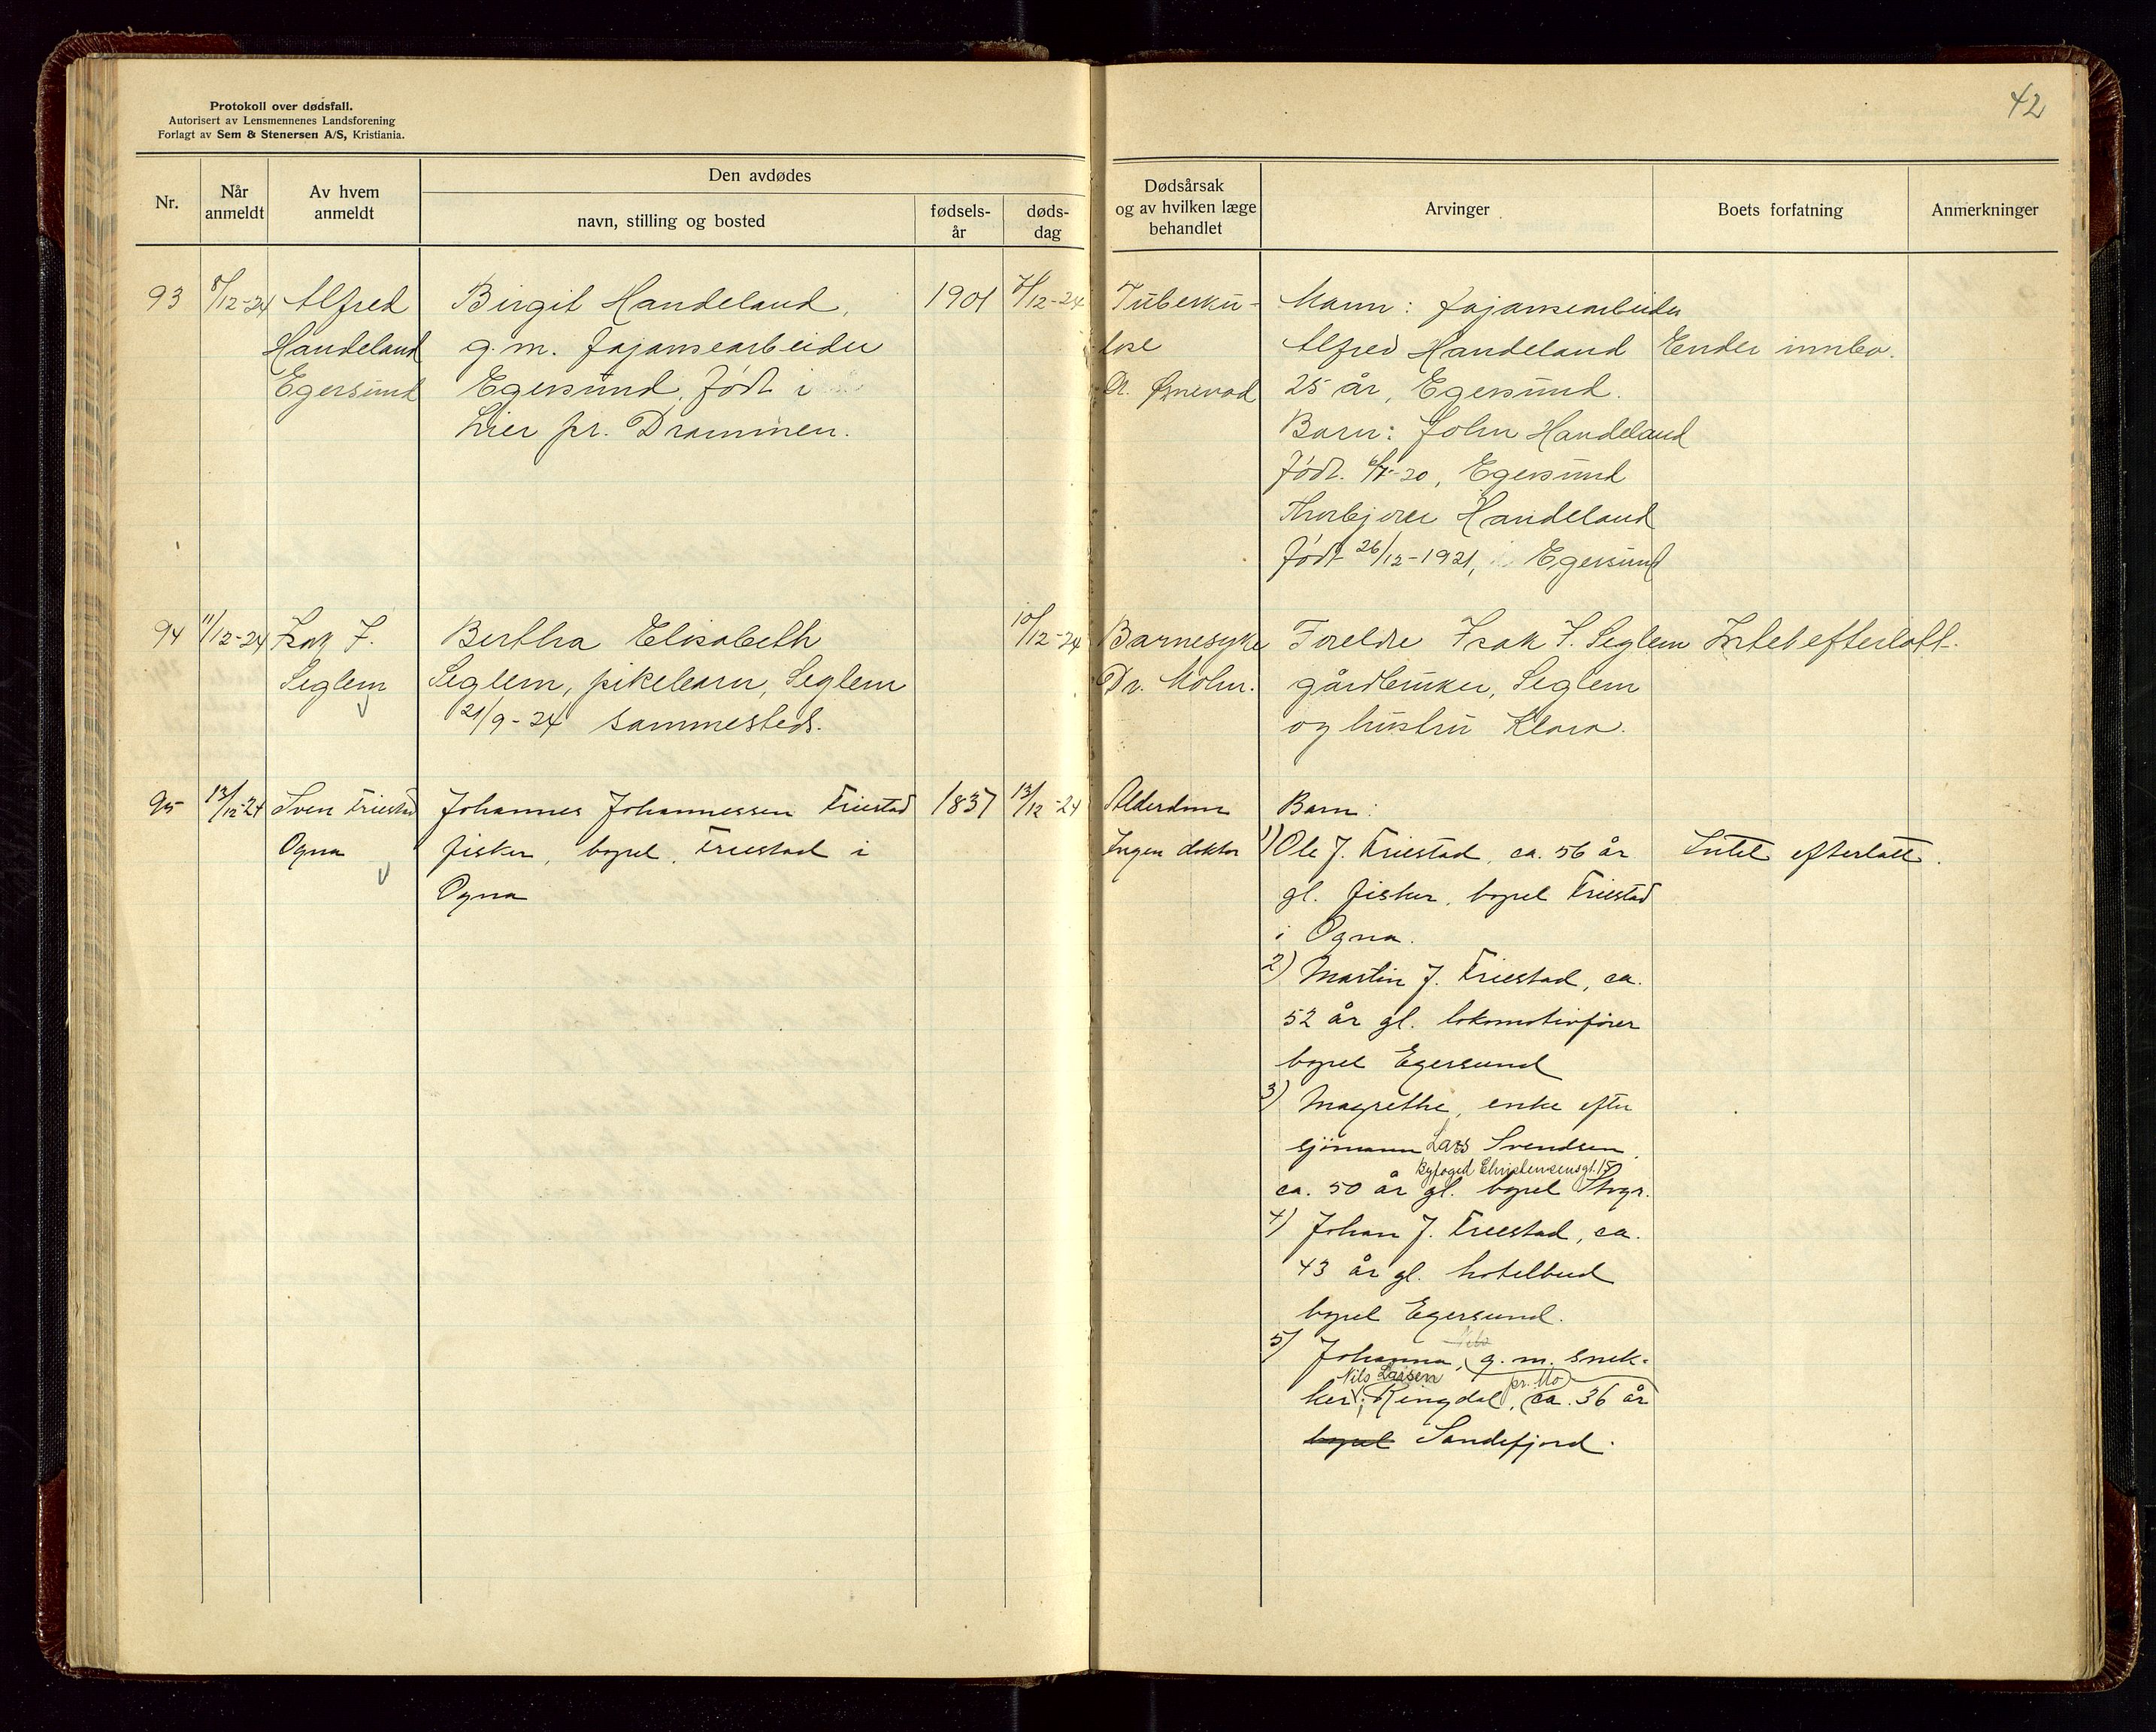 Protokoll over dødsfall.
Autorisert av Lensmennenes Landsforening
Forlagt av Sem & Stenersen A/S, Kristiania.
42
Nr.
Når anmeldt
Av hvem anmeldt
Den avdødes
navn, stilling og bosted
fødsels-år
døds-dag
Dødsårsak og av hvilken læge behandlet
Arvinger
Boets forfatning
Anmerkninger
93
8/12-24
Alfred
Handeland
Egersund
Birgit Handeland,
g.m. fajansearbeider
Egersund, født i
Lier pr. Drammen.
1901
7/12-24
Tuberku-
lose
Dr. Ørnevad
Mann: fajansearbeider
Alfred Handeland
25 år, Egersund.
Barn: John Handeland
født. -20, Egersund
Thorbjørn Handeland
født 26/12-1921, Egersund
innbo.
94
11/12-24
Isak I.
Seglem
Bertha Elisabeth
Seglem, pikebarn, Seglem
21/9-24 sammesteds.
10/12-24
Barnesyke
Dr. Mohn.
Foreldre Isak I. Seglem
gårdbruker, Seglem
og hustru Klara.
Intet efterlatt.
95
13/12-24
Sven Friestad
Ogna
Johannes Johannessen Friestad
fisker, bopel. Friestad i
Ogna
1837
13/12-24
Alderdom
Ingen doktor
Barn:
1) Ole J. Friestad, ca. 56 år
gl. fisker, bopel Friestad
i Ogna.
2) Martin J. Friestad, ca.
52 år gl. lokomotivfører
bopel Egersund
3) Magrethe, enke efter
sjømann Lars Svendsen,
Byfoged Christensensgt. 15
ca. 50 år gl. bopel Stvgr.
4) Johan J. Friestad, ca.
43 år gl. hotelbud
bopel Egersund.
5) Johanna, g.m. snek-
Nils Larsen pr. Mo
ker, Ringdal, ca. 36 år
bopel Sandefjord.
Intet efterlatt.